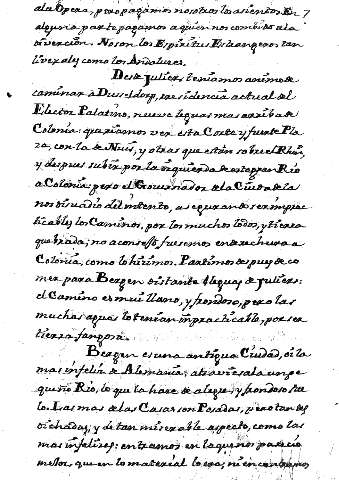 ala Opera, pero pagamos nosotros los asientos. En 7
alguna parte pagamos a quien nos combido ala
diversion. No son los Espiritus Estrangeros tan
liverales como los Andaluces.
Desde Juliers teniamos animo de
caminar a Dusseldorp, residencia actual del
Elector Palatino, nueve leguas mas arriba de
Colonia: queriamos ver esta Corte, y fuerte Pla
za, con la de Nuis, y otras que estàn sobre el Rhin,
y despues subir por la izquierda de este gran Rio
a Colonia: pero el Governador de la Ciudadela
nos disuadio del intento, asegurandose ser imprac
ticables los Caminos, por los muchos lodos, y tierra
quebrada; nos aconsejò fuesemos en derechura a
Colonia, como lo hizimos. Partimos despues de co
mer para Bergen distante 4 leguas de Juliers:
el Camino es mui llano, y frondoso, pero las
muchas aguas lo tenian impracticable, por ser
tierra fangosa.
Bergen es una antigua Ciudad, di la
mas infeliz de Alemania: atraviesala un pe
queño Rio, lo que la hace de alegre, y frondoso sitio
Las mas de las Casas son Posadas, pero tan des
dichadas, y de tan miserable aspecto, como las
mas infelices: entramos en la que nos pareciò
mejor, que en lo material lo era, ni encontramos